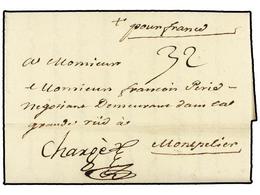 + pour france
32
A Monsieur
Monsieur françois Périé
Negotiant Demeurant dans la
grande rüe à
Chargè
Montpelier